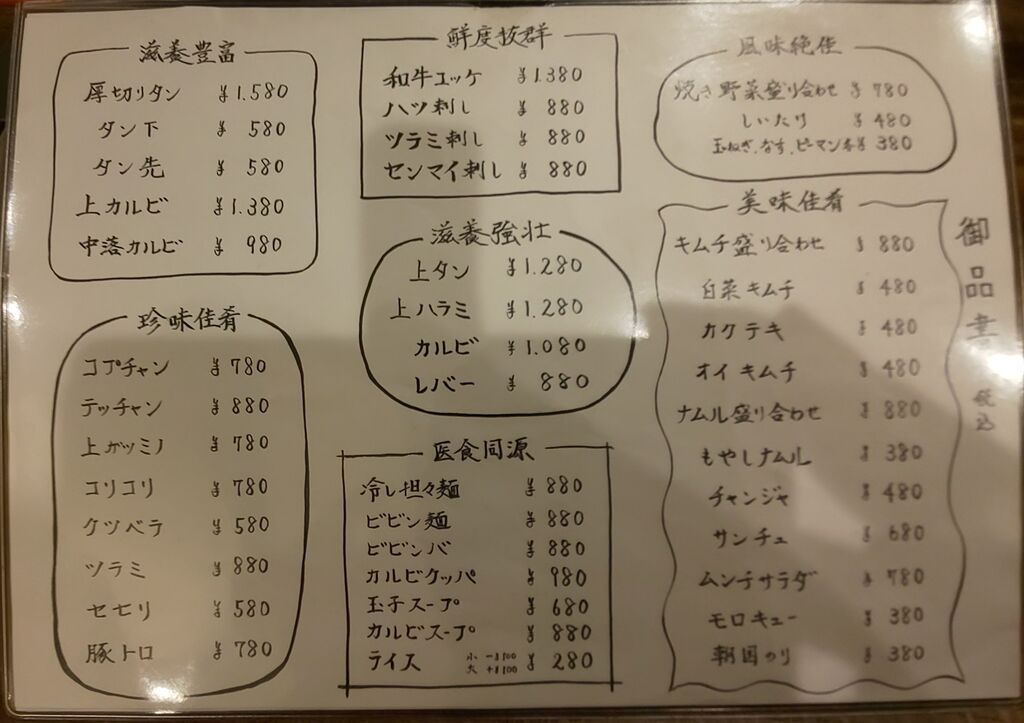 滋養豊富
厚切りタン ¥1.580
タン下 ¥580
タン先 ¥580
上カルビ ¥1.380
中落カルビ ¥980
珍味佳肴
コプチャン ¥780
テッチャン ¥880
上ガツミノ ¥780
コリコリ ¥780
クツベラ ¥580
ツラミ ¥880
セセリ ¥580
豚トロ ¥780
鮮度抜群
和牛ユッケ ¥1.380
ハツ刺し ¥880
ツラミ刺し ¥880
センマイ刺し ¥880
滋養強壮
上タン ¥1.280
上ハラミ ¥1.280
カルビ ¥1.080
レバー ¥880
医食同源
冷し担々麺 ¥880
ビビン麺 ¥880
ビビンバ ¥880
カルビクッパ ¥980
玉子スープ ¥680
カルビスープ ¥880
ライス 小-¥100 大+¥100 ¥280
風味絶佳
焼き野菜盛り合わせ ¥780
しいたけ ¥480
玉ねぎ、なす、ピーマン各¥380
美味佳肴
キムチ盛り合わせ ¥880
白菜キムチ ¥480
カクテキ ¥480
オイキムチ ¥480
ナムル盛り合わせ ¥880
もやしナムル ¥380
チャンジャ ¥480
サンチュ ¥680
ムンチサラダ ¥780
モロキュー ¥380
韓国のり ¥380
御品書 税込